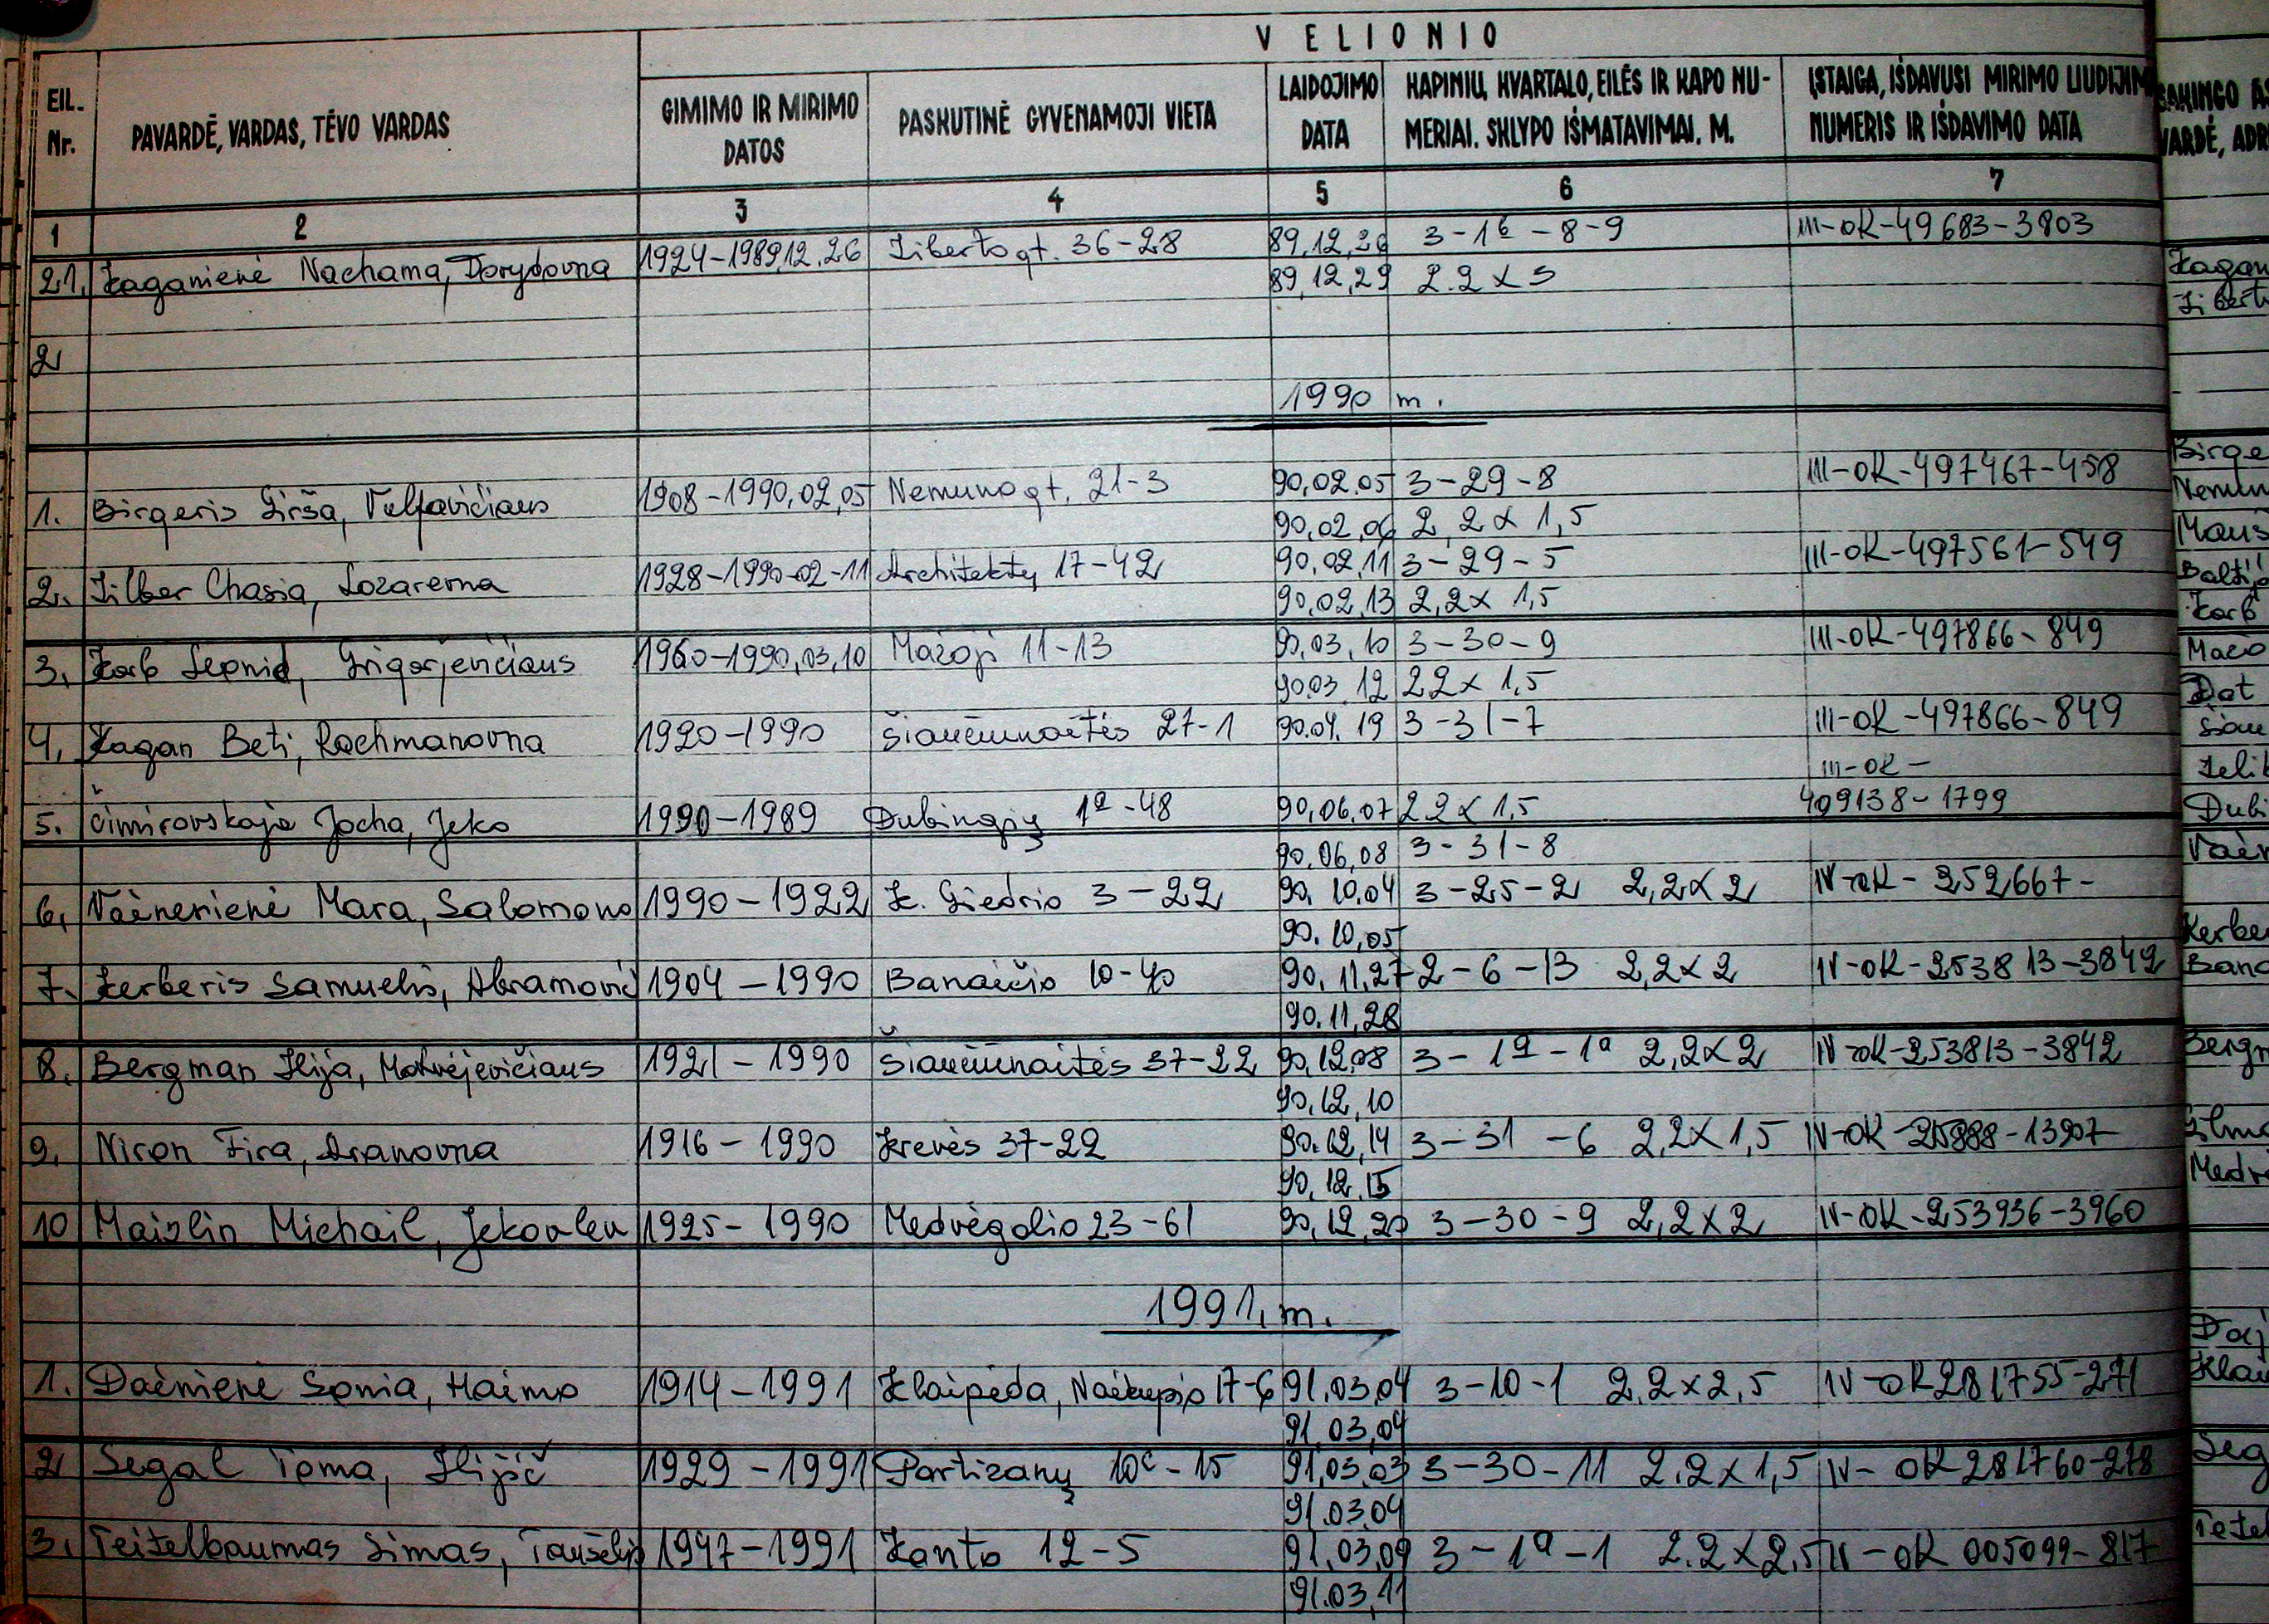 VELIONIO
EIL. Nr. PAVARDĖ, VARDAS, TĖVO VARDAS GIMIMO IR MIRIMO DATOS PASKUTINĖ GYVENAMOJI VIETA LAIDOJIMO DATA KAPINIŲ, KVARTALO, EILĖS IR KAPO NUMERIAI. SKLYPO IŠMATAVIMAI. M. ĮSTAIGA, IŠDAVUSI MIRIMO LIUDIJIM NUMERIS IR IŠDAVIMO DATA
1 2 3 4 5 6 7
21. Kaganienė Nachama, Dovydovna 1924-1989,12.26 Liberto gt. 36-28 89,12,26 3-1б-8-9 III-OK-49683-3803
89,12,29 2.2x3
2
1990 m.
1. Birgeris Girša, Vulfavičiaus 1908-1990,02,05 Nemuno gt. 21-3 90,02.05 3-29-8 III-OK-497467-458
90,02,06 2,2x1,5
2. Zilber Chasia, Lozarevna 1928-1990-02-11 Architektų 17-42 90,02,11 3-29-5 III-OK-497561-549
90,02,13 2,2x1,5
3. Karb Leonid, Grigorjevičiaus 1960-1990,03,10 Mažoji 11-13 90,03,10 3-30-9 III-OK-497866-849
90.03 12 22x1,5
4. Kagan Beti, Rachmanovna 1920-1990 Šiaučiūnaitės 27-1 90.04.19 3-31-7 III-OK-497866-849
III-OK-
5. Čimirovskaja Jocha, Jeko 1990-1989 Dubingių 1a-48 90,06,07 22x1,5 409138-1799
90,06,08 3-31-8
6. Vainerienė Mara, Salomono 1990-1922 K. Giedrio 3-22 90.10.04 3-25-2 2,2x2 IV-OK-252667-
90.10,05
7. Kerberis Samuelis, Abramovič 1904-1990 Banaičio 10-40 90.11.27 2-6-13 2,2x2 IV-OK-253813-3842
90.11,28
8. Bergman Ilija, Matvėjevičiaus 1921-1990 Šiaučiūnaitės 37-22 90,12,08 3-1a-1a 2,2x2 IV-OK-253813-3842
90,12,10
9. Niron Fira, Aranovna 1916-1990 Krėvės 37-22 90.12,14 3-31-6 2,2x1,5 IV-OK-25888-13907
90,12.15
10 Maizlin Michail, Jekovlev 1925-1990 Medvėgalio 23-61 90,12,20 3-30-9 2,2x2 IV-OK-253936-3960
1991.m.
1. Dainienė Sonia, Haimo 1914-1991 Klaipėda, Naikupio 17-6 91.03,04 3-10-1 2,2x2,5 IV-OK281755-271
91,03,04
2 Segal Toma, Iljič 1929-1991 Partizanų 10c-15 91,03,03 3-30-11 2.2x1,5 IV-OK281760-278
91.03.04
3. Teitelbaumas Simas, Taušelio 1947-1991 Kanto 12-5 91,03,09 3-1a-1 2.2x2,5 IV-OK 005099-817
91.03,11